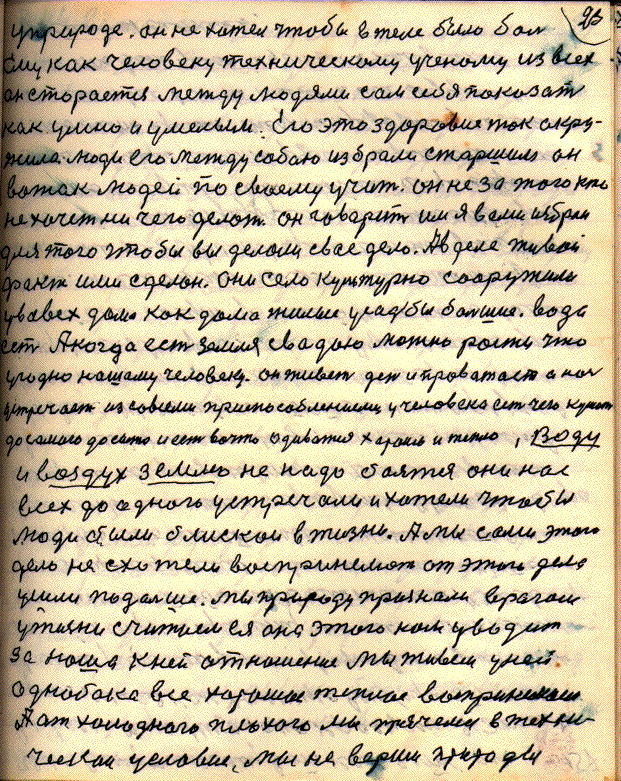 23
уприроде. он не хотел чтобы в теле было бол
ему как человеку техническому ученому из всех
он сторается между людями сам себя показат
как умно и умелым. Его это здоровие так окру-
жила люди его между собою избрали старшим он
вотак людей по своему учит. он не за того кто
не хочет ни чего делот. он говарит им я вами избран
для того чтобы вы делали свае дело. А в деле живой
факт ими сделон. Они село культурно сооружили
увсех дома как дома жилые усадбы большие. вода
ест А когда ест земля свадою можно рости что
угодно нашому человеку. он живет ден и проватает а ноч
устречает из совсеми приспособлениеми у человека ест чего кушат
до самого досыта и ест вочто одиватся харашо и тепло, Воду
и воздух землю не надо боятся они нас
всех до одного устречали и хотели чтобы
люди были блиской в жизни. А мы сами этого
дело не схотели воспринемат от этого дела
ушли подальше. мы природу признали врагом
ужизни считаем ся она этого нам уводит
за наша кней отношение мы живем уней
однобака все хорошое теплое воспринемаем
А от холодного плохого мы прячемся в техни-
ческои условие, мы не верим природи